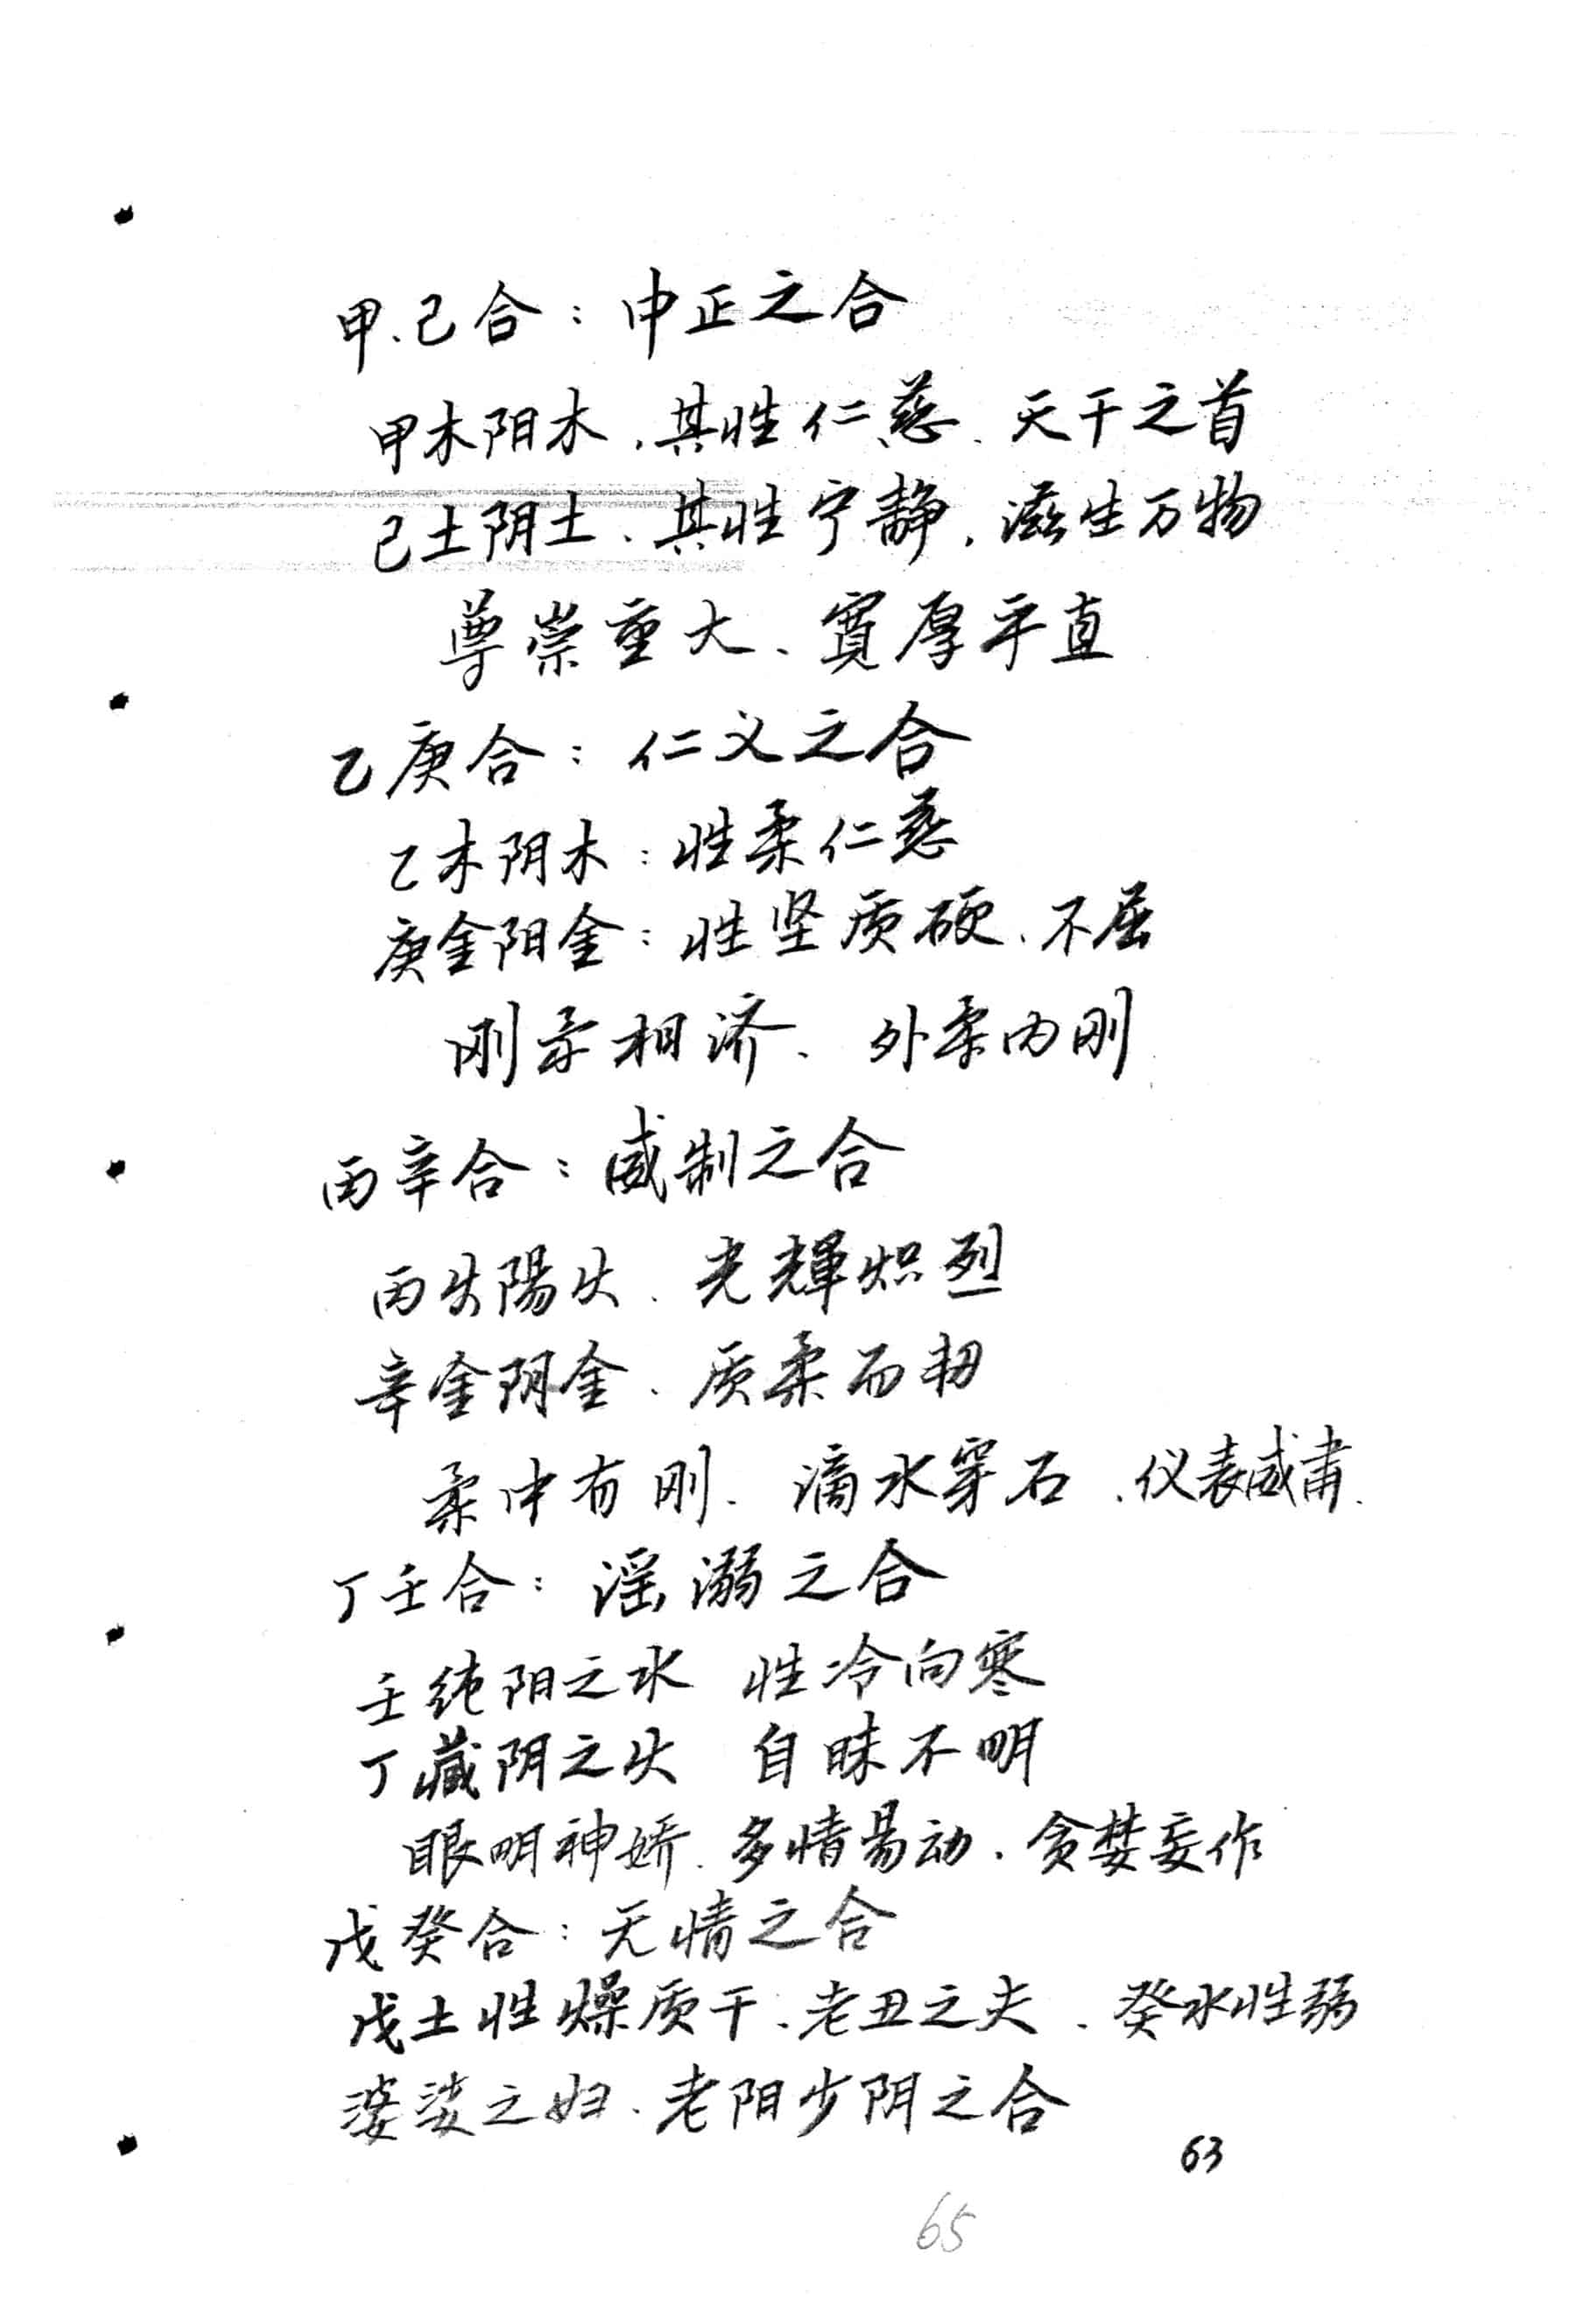 甲、己合：中正之合
甲木阳木，其性仁慈、天干之首
己土阴土、其性宁静，滋生万物
尊崇重大、寬厚平直
乙庚合：仁义之合
乙木阴木：性柔仁慈
庚金阳金：性坚质硬、不屈
刚柔相济、外柔内刚
丙辛合：威制之合
丙火陽火、光輝炽烈
辛金阴金、质柔而韧
柔中有刚、滴水穿石、仪表威肃、
丁壬合：淫溺之合
壬纯阳之水 性冷向寒
丁藏阴之火 自昧不明
眼明神娇、多情易动、贪婪妄作
戊癸合：无情之合
戊土性燥质干、老丑之夫、癸水性弱
婆娑之妇、老阳少阴之合
63
65